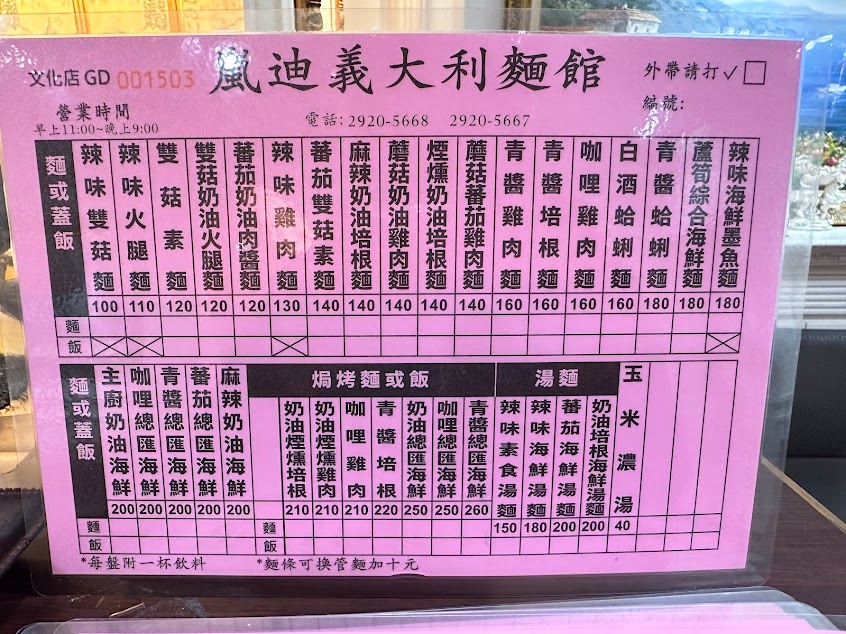 文化店 GD 001503
嵐迪義大利麵館
外帶請打✓☐
營業時間
早上11:00~晚上9:00
電話: 2920-5668 2920-5667
編號:
麵或蓋飯
辣味雙菇麵 100
辣味火腿麵 110
雙菇素麵 120
雙菇奶油火腿麵 120
蕃茄奶油肉醬麵 120
辣味雞肉麵 130
蕃茄雙菇素麵 140
麻辣奶油培根麵 140
蘑菇奶油雞肉麵 140
煙燻奶油培根麵 140
蘑菇蕃茄雞肉麵 140
青醬雞肉麵 160
青醬培根麵 160
咖哩雞肉麵 160
白酒蛤蜊麵 160
青醬蛤蜊麵 180
蘆筍綜合海鮮麵 180
辣味海鮮墨魚麵 180
麵
飯
麵或蓋飯
主廚奶油海鮮 200
咖哩總匯海鮮 200
青醬總匯海鮮 200
蕃茄總匯海鮮 200
麻辣奶油海鮮 200
焗烤麵或飯
奶油煙燻培根 210
奶油煙燻雞肉 210
咖哩雞肉 210
青醬培根 220
奶油總匯海鮮 250
咖哩總匯海鮮 250
青醬總匯海鮮 260
湯麵
辣味素食湯麵 150
辣味海鮮湯麵 180
蕃茄海鮮湯麵 200
奶油培根海鮮湯麵 200
玉米濃湯 40
麵
飯
麵
飯
*每盤附一杯飲料
*麵條可換管麵加十元